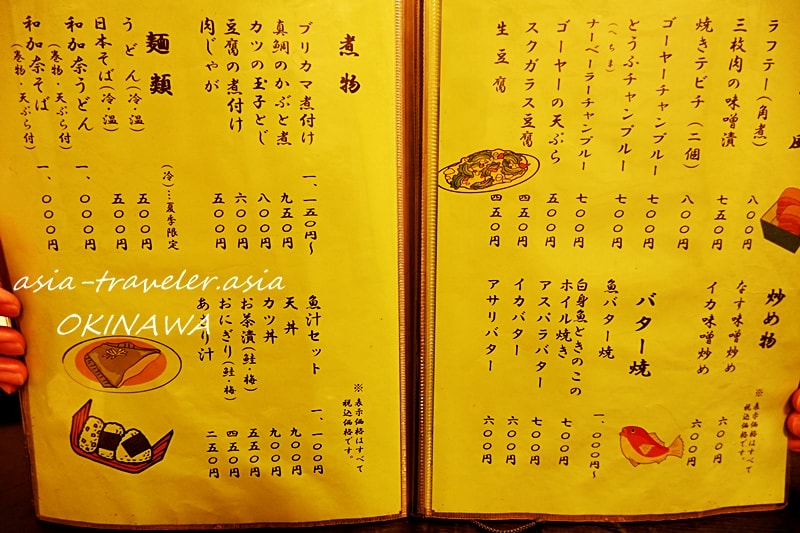 風
ラフテー(角煮) 八〇〇円
三枚肉の味噌漬 七五〇円
焼きテビチ(二個) 八〇〇円
ゴーヤーチャンプルー 七〇〇円
とうふチャンプルー 七〇〇円
(へちま)
ナーベーラーチャンプルー 七〇〇円
ゴーヤーの天ぷら 五〇〇円
スクガラス豆腐 四五〇円
生豆腐 四五〇円
炒め物
なす味噌炒め 六〇〇円
イカ味噌炒め 六〇〇円
バター焼
魚バター焼 一、〇〇〇円〜
白身魚ときのこの
ホイル焼き 七〇〇円
アスパラバター 七〇〇円
イカバター 六〇〇円
アサリバター 六〇〇円
※表示価格はすべて
税込価格です。
煮物
ブリカマ煮付け 一、一五〇円〜
真鯛のかぶと煮 九五〇円
カツの玉子とじ 八〇〇円
豆腐の煮付け 六〇〇円
肉じゃが 五〇〇円
麺類
(冷)…夏季限定
うどん(冷・温) 五〇〇円
日本そば(冷・温) 五〇〇円
和加奈うどん 一、〇〇〇円
(巻物・天ぷら付)
和加奈そば 一、〇〇〇円
(巻物・天ぷら付)
魚汁セット 一、一〇〇円
天丼 九〇〇円
カツ丼 九〇〇円
お茶漬(鮭・梅) 五五〇円
おにぎり(鮭・梅) 四五〇円
あさり汁 二五〇円
※表示価格はすべて
税込価格です。
asia-traveler.asia
OKINAWA